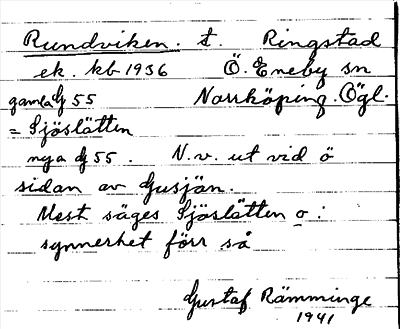 Rundviken. t. Ringstad
ek. kb 1936 Ö. Eneby sn
gamla G 55 Norrköping. Ögl.
= Sjöslätten
nya G 55. N.v. ut vid ö
sidan av Gusjän.
Mest säges Sjöslätten o :
synnerhet förr så
Gustaf Rämminge
1941